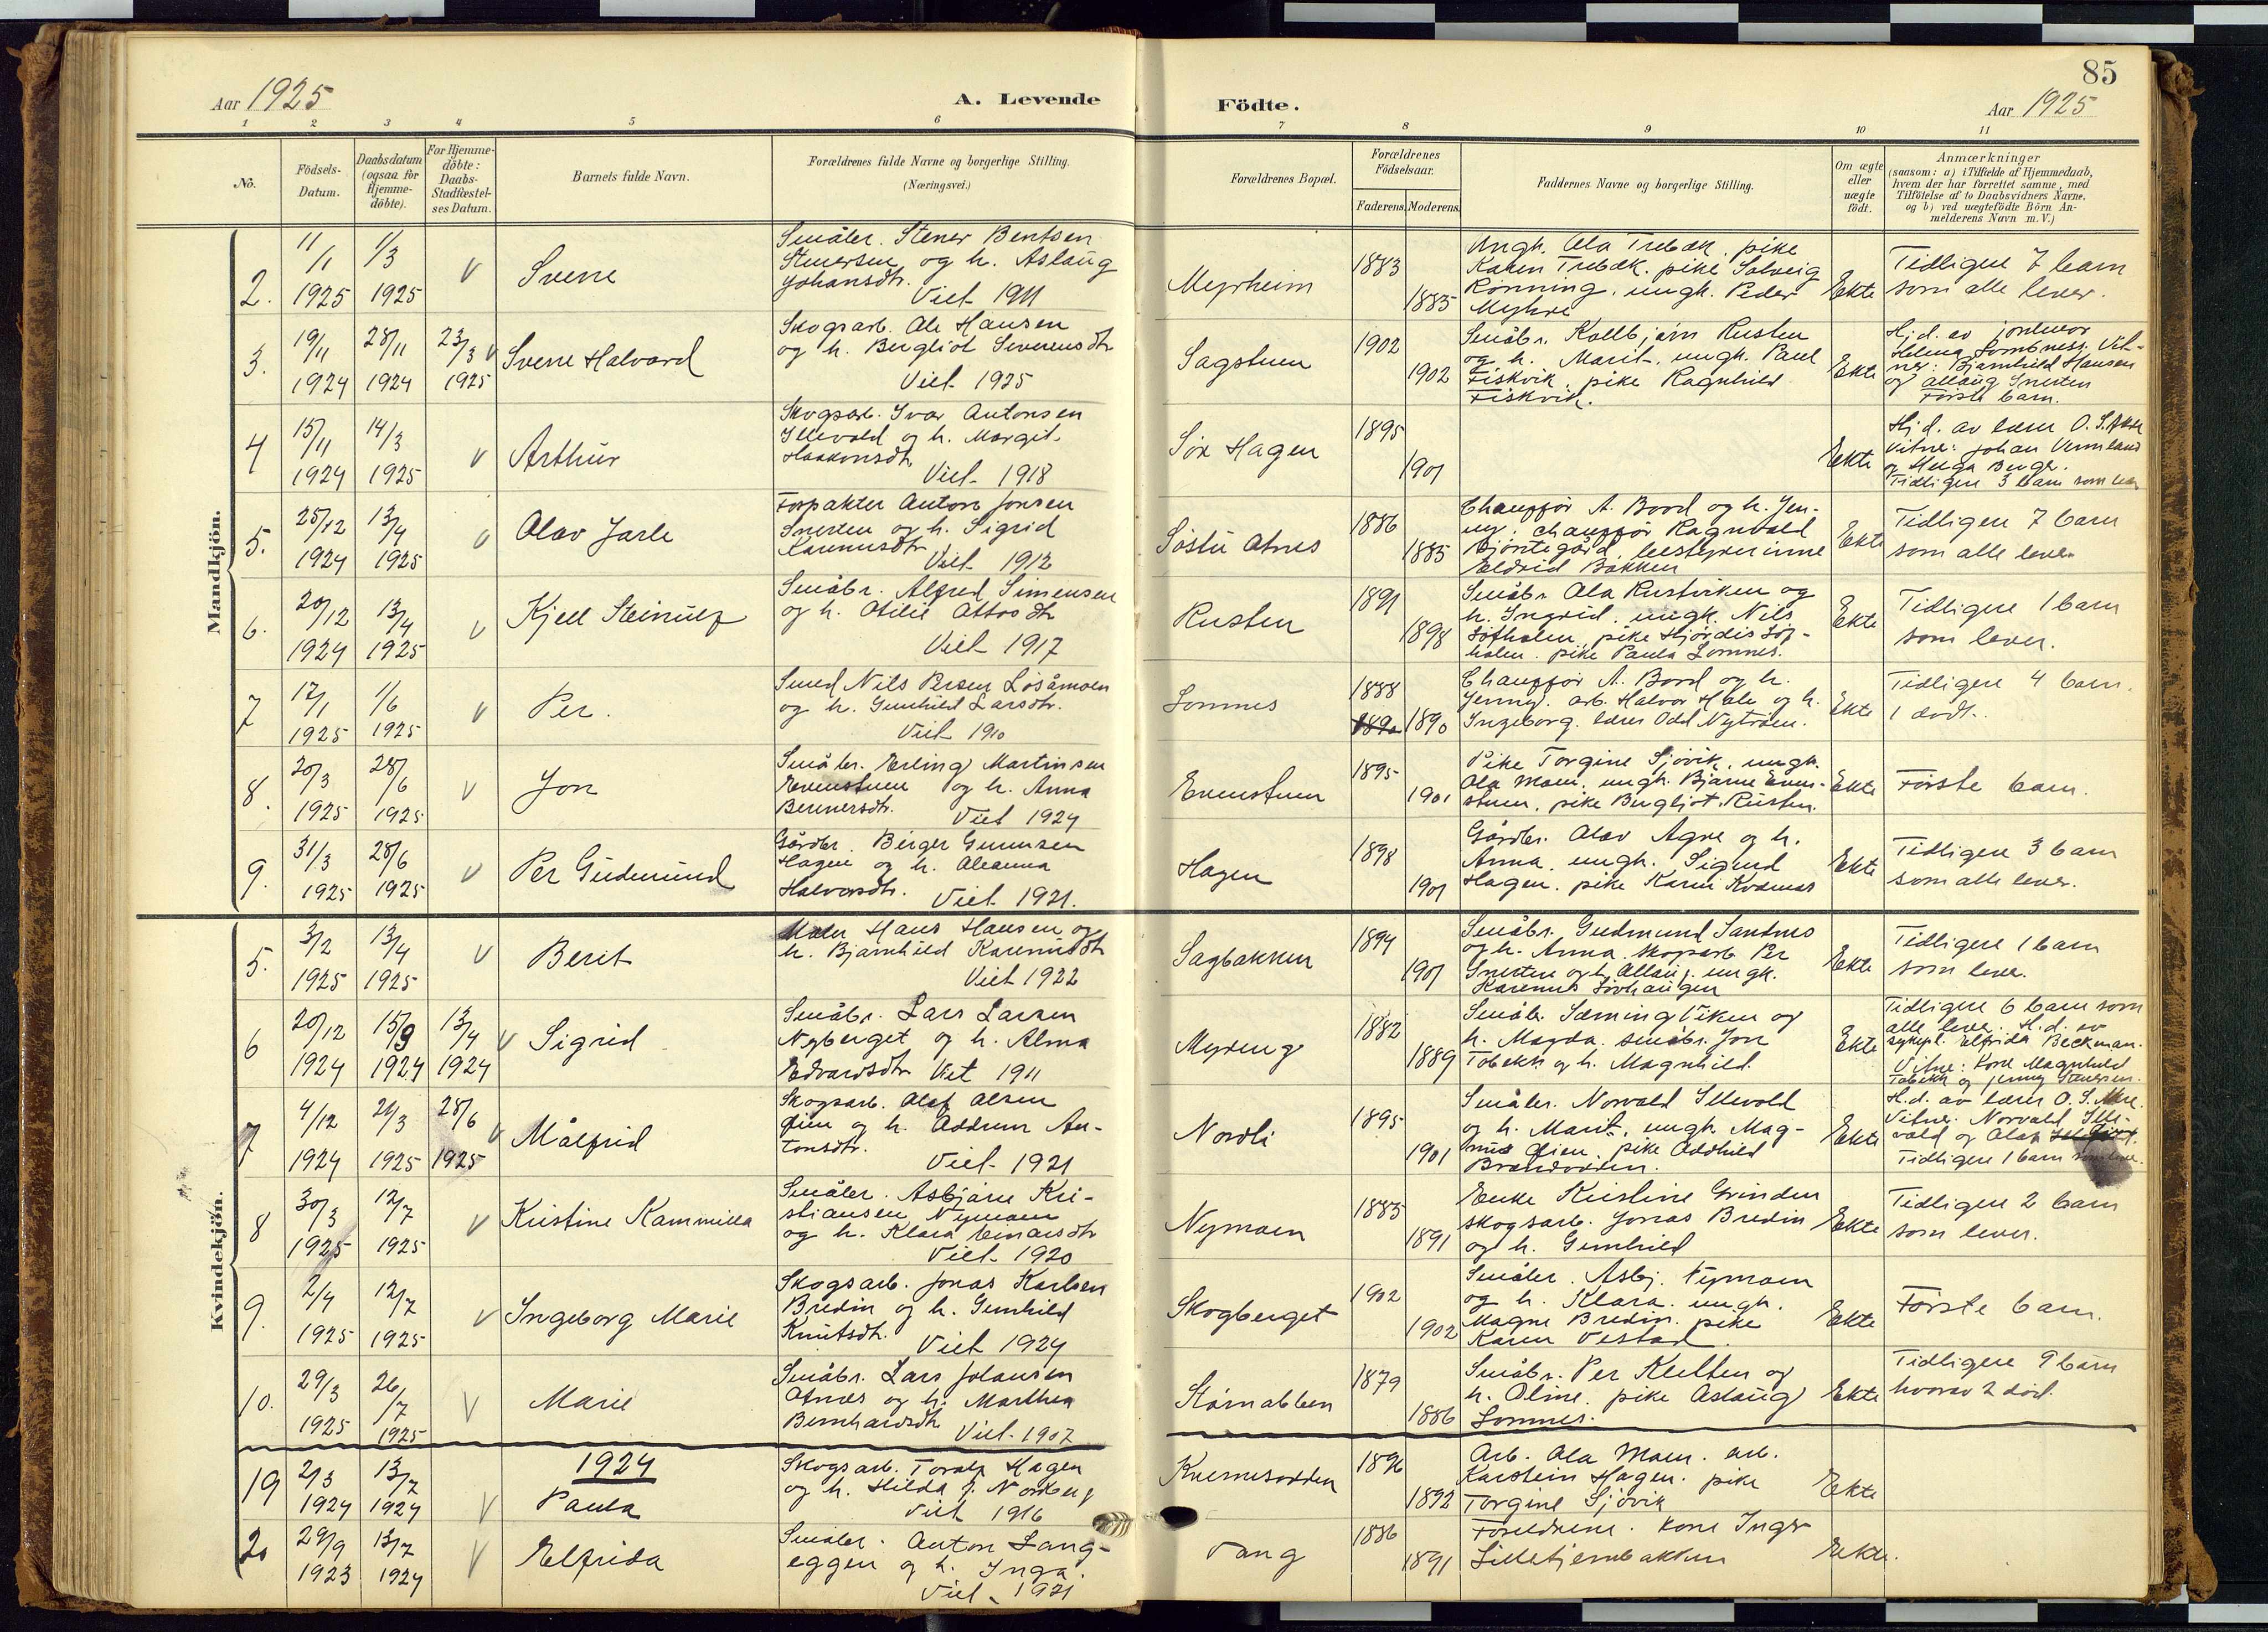 Aar 1925
A. Levende
Födte.
Aar 1925
85
1 2 3 4 5 6 7 8 9 10 11
No.
Födsels-Datum.
Daabsdatum (ogsaa for Hjemme-döbte).
For Hjemme-döbte: Daabs-Stadfæstel-ses Datum.
Barnets fulde Navn.
Forældrenes fulde Navne og borgerlige Stilling.
(Næringsvei.)
Forældrenes Bopæl.
Forældrenes Födselsaar.
Faderens. Moderens.
Faddernes Navne og borgerlige Stilling.
Om ægte eller uægte födt.
Anmærkninger
(saasom: a) i Tilfælde af Hjemmedaab,
hvem der har forrettet samme, med
Tilföielse af to Daabsvidners Navne.
og b) ved uægtefödte Börn An-
melderens Navn m. V.)
Mandkjön.
2. 11/1 1925 1/3 1925 v Sverre
Småbr. Stener Bentsen
Stenersen og h. Aslaug
Johansdtr.
Viet 1911
Myrheim 1883 1885
Ungk. Ola Trebæk, pike
Karen Trebæk. pike Solveig
Rönning, ungk. Peder
Myhre
Ekte
Tidligere 7 barn
som alle lever.
3. 19/11 1924 28/11 1924 23/3 1925 v Sverre Halvard
Skogsarb. Ole Hansen
og h. Bergliot Severensdtr
Viet 1925
Sagstuen 1902 1902
Småbr. Kolbjörn Rusten
og h. Marit, ungk. Paul
Fiskvik, pike Ragnhild
Fiskvik.
Ekte
Hj.d. av jordmor
Helena Lombness. Vit-
ner: Bjarnhild Hansen
og Allaug Snerten
Förste barn.
4 15/11 1924 14/3 1925 v Arthur
Skogsarb. Ivar Antonsen
Illevold og h. Margit
Haakonsdtr
Viet 1918
Sör Hagen 1895 1901
Ekte
Hj.d. av lærer O. S. Akre
Vitner: Johan Vermland
og Helga Berger.
Tidligere 3 barn som lever
5. 25/12 1924 13/4 1925 v Olav Jarle
Forpakter Anton Jonsen
Snerten og h. Sigrid
Karenusdtr
Viet 1912
Söstu Atnes 1886 1885
Chaufför A. Bood og h. Jen-
ny, chaufför Ragnvald
Bjöntegård, bestyrerinne
Eldrid Bakken
Ekte
Tidligere 7 barn
som alle lever
6. 20/12 1924 13/4 1925 v Kjell Steinulf
Småbr. Alfred Simensen
og h. Otilie Ottosdtr
Viet 1917
Rusten 1891 1898
Småbr Ola Rustviken og
h. Ingrid. ungk. Nils
Löfholen, pike Hjördis Löf-
holen. pike Paula Lomnes.
Ekte
Tidligere 1 barn
som lever.
7 12/1 1925 1/6 1925 v Per.
Smed Nils Persen Losåmoen
og h. Gunhild Larsdtr.
Viet 1910
Lomnes 1888 1890 1890
Chaufför A. Bood og h.
Jenny. arb. Halvor Hole og h.
Ingeborg. lærer Odd Nyström.
Ekte
Tidligere 4 barn.
1 dödt.
8. 20/3 1925 28/6 1925 v Jon
Småbr. Erling Martinsen
Evenstuen og h. Anna
Bernersdtr.
Viet 1924
Evenstuen 1895 1901
Pike Torgine Sjövik, ungk.
Ola Moen, ungk. Bjarne Even-
stuen, pike Bergliot Rusten.
Ekte
Förste barn.
9. 31/3 1925 28/6 1925 v Per Gudmund
Gårdbr. Birger Gunnersen
Hagen og h. Oleanna
Halvorsdtr. Viet 1921.
Hagen 1898 1901
Gårdbr. Olav Agre og h.
Anna, ungk. Sigurd
Hagen. pike Karin Kvernes
Ekte
Tidligere 3 barn
som alle lever.
Kvindekjön.
5. 3/2 1925 13/4 1925 v Berit
Maler Hans Hansen og
h. Bjarnhild Karenusdtr
Viet 1922
Sagbakken 1894 1901
Småbr. Gudmund Sandnes
og h. Anna. skogsarb Per
Snerten og h. Allaug. ungk.
Karenus Lövhaugen
Ekte
Tidligere 1 barn
som lever.
6 20/12 1924 15/9 1924 13/4 1924 v Sigrid
Småbr. Lars Larsen
Nyberget og h. Alma
Edvardsdtr Viet 1911
Myreng 1882 1889
Småbr. Sæming Viken og
h. Magda. småbr. Jon
Tobekk og h. Magnhild
Ekte
Tidligere 6 barn som
alle lever. H.d. av
sykepl. Elfrida Beckman.
Vitne: Kone Magnhild
Tobekk og Jenny Stenersen.
7 4/12 1924 21/3 1925 28/6 1925 v Målfrid
Skogsarb. Olaf Olsen
Öien og h. Oddrun An-
tonsdtr.
Viet 1921
Nordli 1895 1901
Småbr. Norvald Illevold
og h. Marit, ungk. Mag-
nus Öien, pike Oddhild
Brandvolden.
Ekte
H.d. av lærer O. S. Akre.
Vitner Norvald Ille-
vold og Olav
Tidligere 1 barn som lever.
8 30/3 1925 12/7 1925 v Kristine Kammilla
Småbr. Asbjörn Kri-
stiansen Nymoen
og h. Klara Einarsdtr
Viet 1920
Nymoen 1885 1891
Enke Kristine Grinden
skogsarb. Jonas Bredin
og h. Gunhild
Ekte
Tidligere 2 barn
som lever.
9. 2/4 1925 12/7 1925 v Ingeborg Marie
Skogsarb. Jonas Karlsen
Bredin og h. Gunhild
Knutsdtr.
Viet 1924
Skogberget 1902 1902
Småbr. Asbj. Nymoen
og h. Klara. ungk.
Magne Bredin. pike
Karen Vestad.
Ekte
Förste barn.
10. 29/3 1925 26/7 1925 v Marie
Småbr. Lars Johansen
Atnes og h. Marthea
Bernhardsdtr
Viet 1907
Stornabben 1879 1886
Småbr. Per Kletten og
h. Oline. pike Aslaug
Lomnes.
Ekte
Tidligere 9 barn
hvorav 2 död.
1924
19 2/3 1924 13/7 1924 v Paula
Skogsarb. Toralf Hagen
og h. Hilda f. Nordberg
Viet 1916
Kvernesodden 1896 1892
Arb. Ola Moen. arb.
Karstein Hagen. pike
Torgine Sjövik
Ekte
20 29/9 1923 13/7 1924 v Elfrida
Småbr. Anton Lang-
eggen og h. Inga.
Viet 1921
Vang 1886 1891
Foreldrene. Kone Inger
Lilletjernbakken
Ekte.